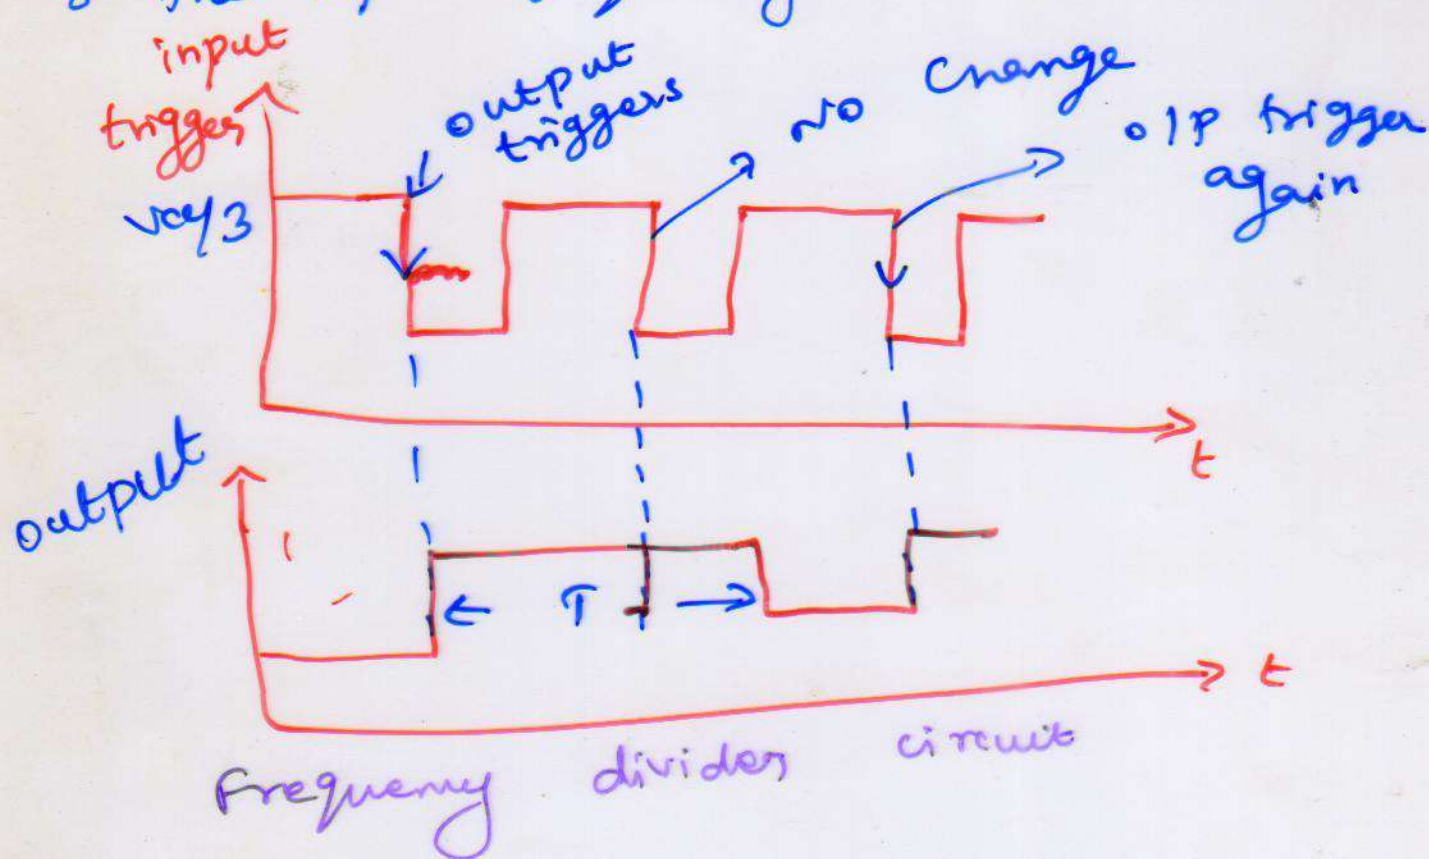 input
trigger
output
triggers
NO Change
o/p trigger
again
Vcc/3
t
output
T
t
Frequency divider circuit